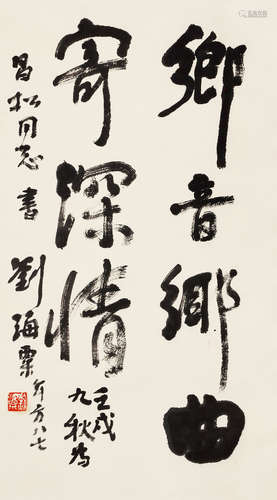 鄉音鄉曲
寄深情
壬戌
九秋為
昌松同志書
劉海粟年方八七